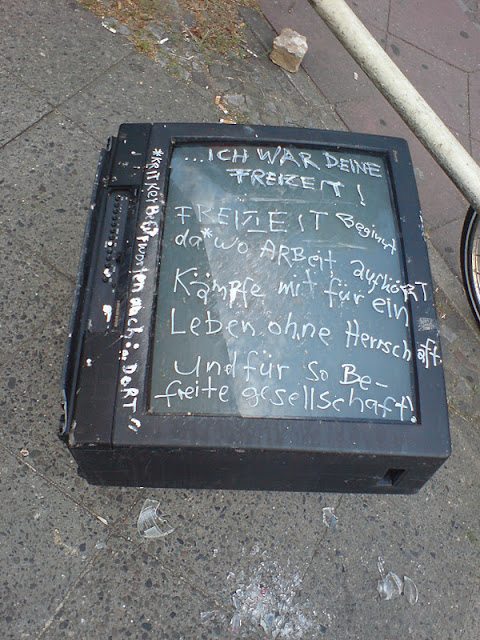 ...ICH WAR DEINE
FREIZEIT!
FREIZIEST Beginnt
da* wo ARBeit aufhört
Kämpfe mit für ein
Leben ohne Herrschaft
und für so Be-
freite gesellschaft!
*KRITIKER antworten auch: "DORT"